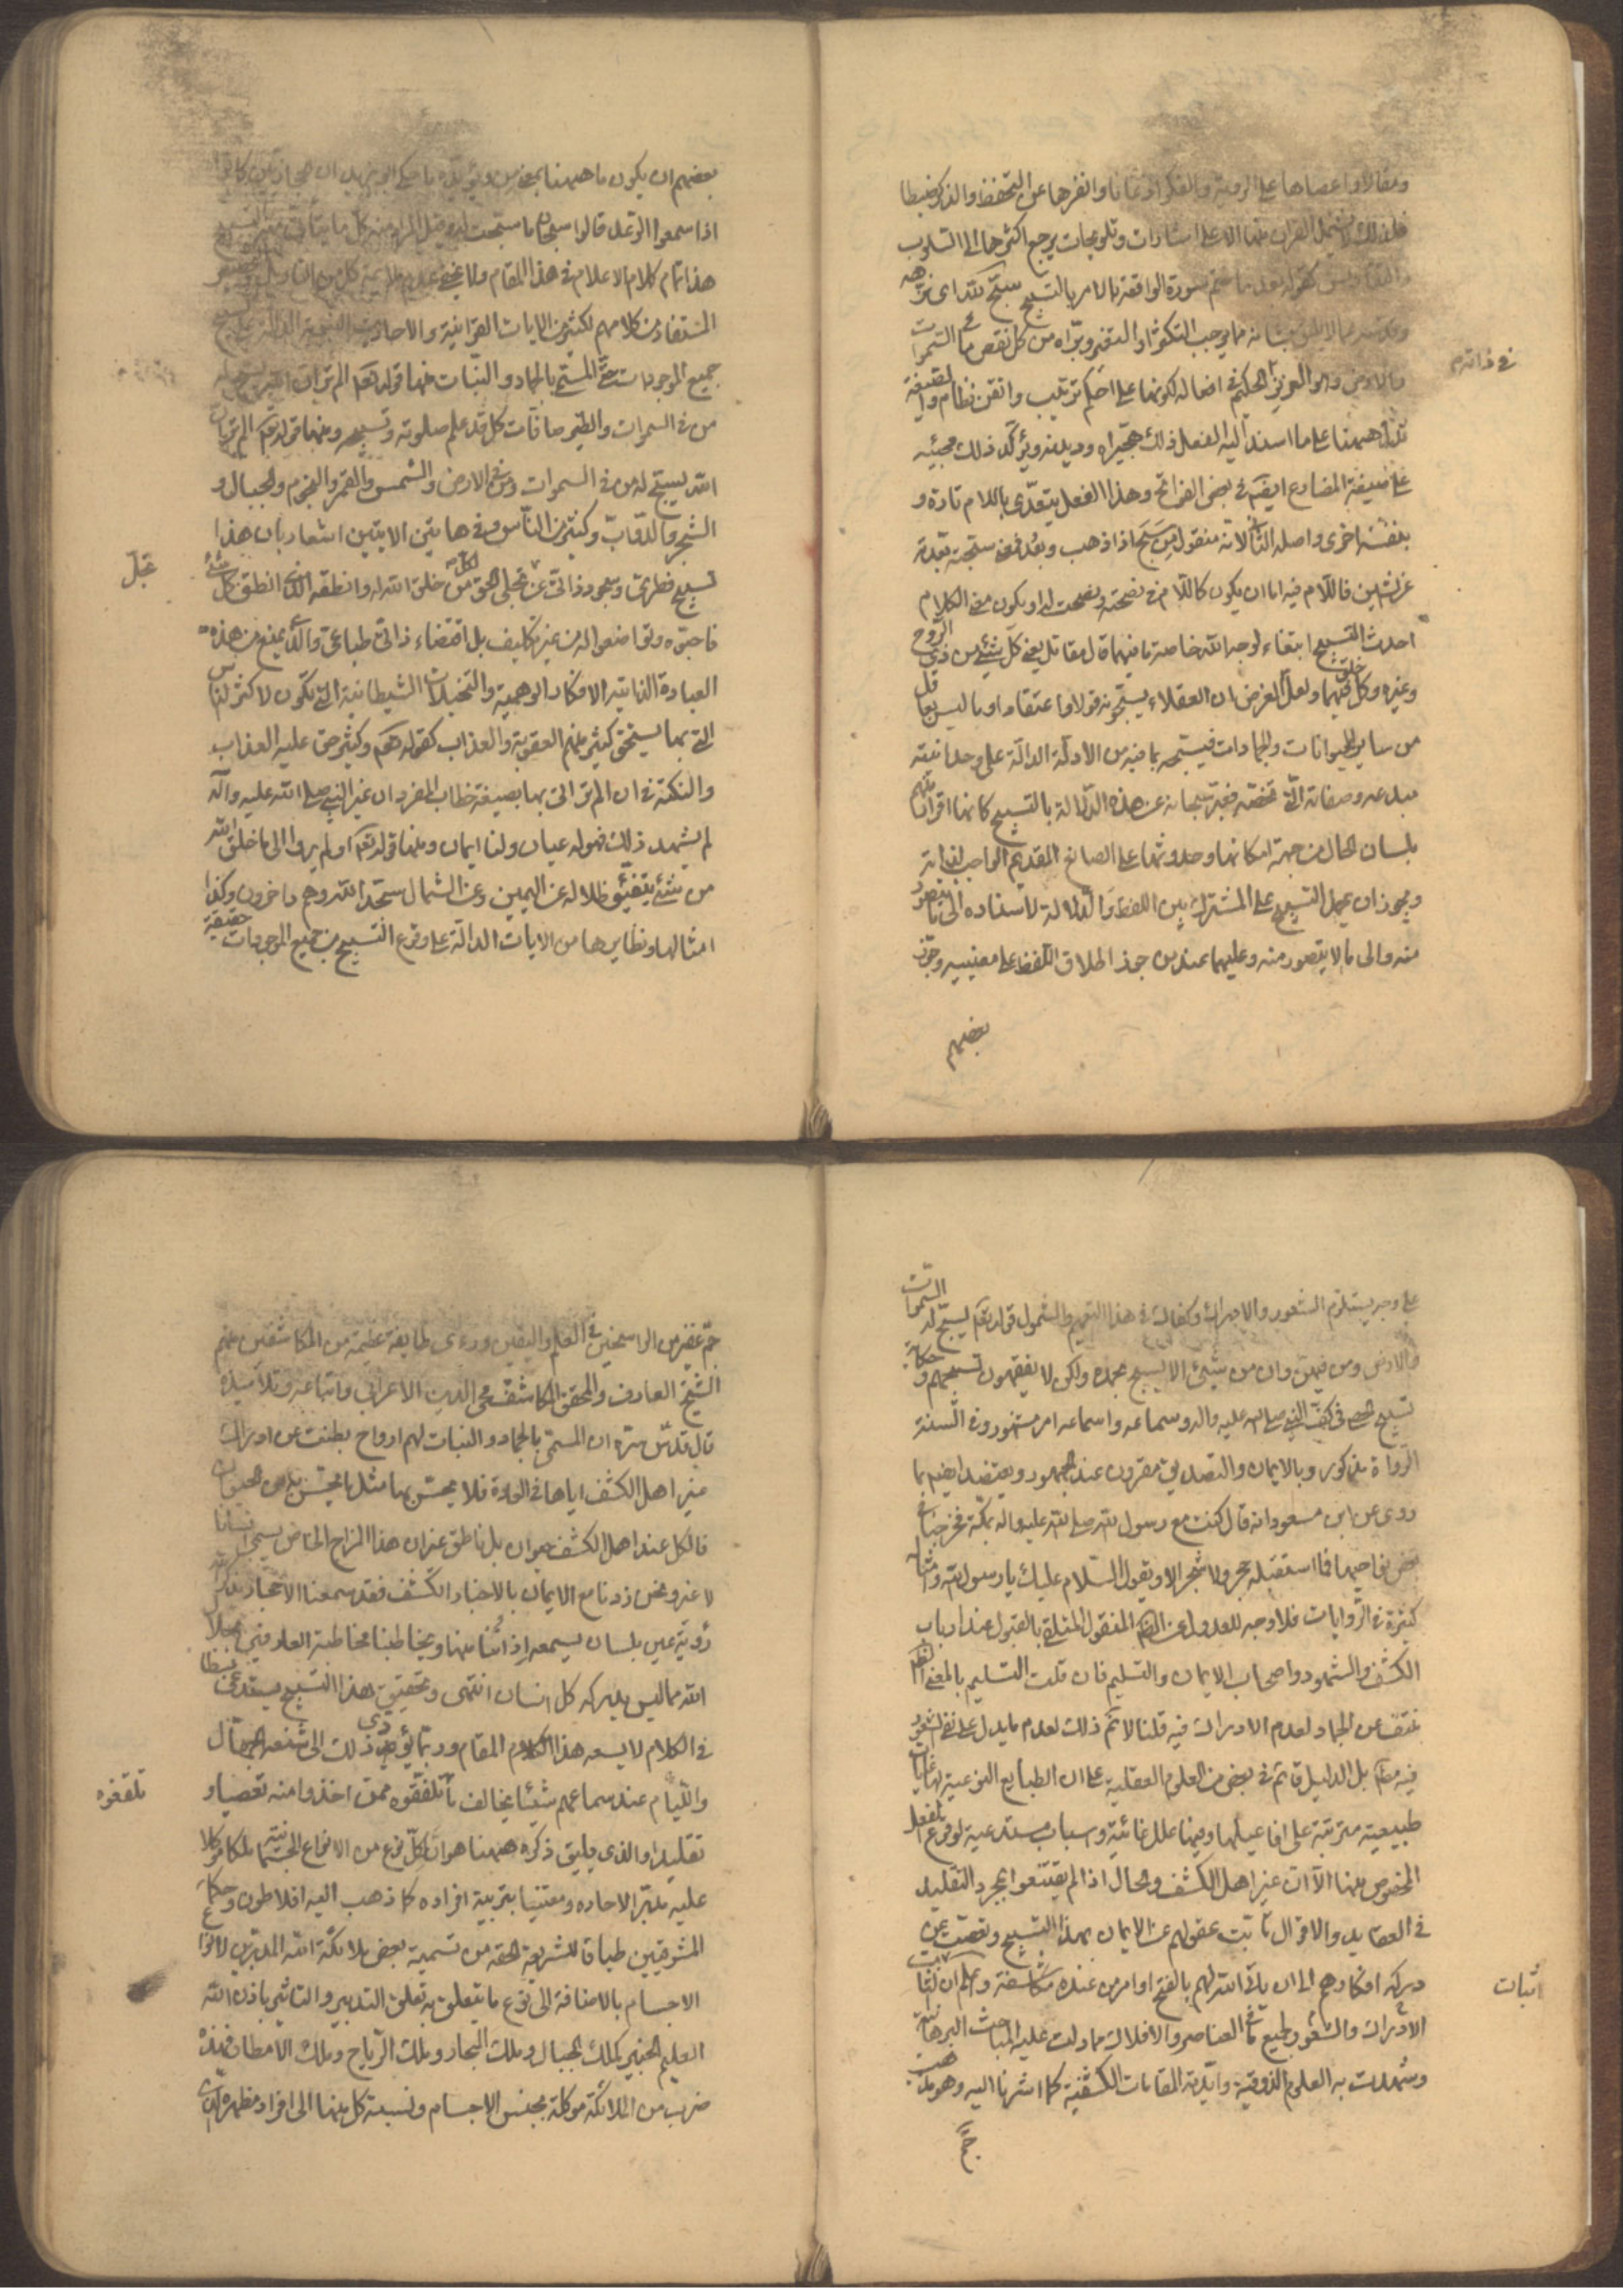 ومقالا واعصاها على الروية والفكر اذعانا وانفرها عن التحفظ والذكر ضبطا
فلذلك لا يشمل القران منها الا على اشارات وتلويحات يرجع اكثرها الى السلوب
والتقاديس كقوله بعد ما ختم سورة الواقعة بالامر بالتسبيح سبح لله اى نزهه
وقدسه عما لا يليق بشانه مما يوجب التكثر او التغير وبراه من كل نقص ما فى السموات
والارض وهو العزيز الحكيم فى افعاله لكونها على احكم ترتيب واتقن نظام وايقيقة
تدل ههنا على ما اسند اليه الفعل ذلك هجيراه وديدنه ويؤكد ذلك مجيئه
على صيغة المضارع ايضا فى بعض الفواتح وهذا الفعل يتعدى باللام تارة و
بنفسه اخرى واصله الثانى لانه منقول من سبح اذا ذهب وبعد فمعنى سبحته بعدته
عن الشين فاللام فيه اما ان يكون كاللام فى نصحته ونصحت له او يكون معنى الكلام
احدث التسبيح ابتغاء لوجه الله خاصة ما فيهما قال مقاتل يعنى كل شىء من ذى الروح
وغيره وكل خلق فيهما ولعل الغرض ان العقلاء يسبحونه قولا واعتقادا وما ليس بعاقل
من ساير الحيوانات والجمادات فيسبحه بما فيه من الادلة الدالة على وحدانيته
مبدعه وصفاته التى تخصه فعبر سبحانه عن هذه الدلالة بالتسبيح كانها اقرار منهم
بلسان الحال من جهة امكانها وحدوثها على الصانع القديم الواجب لذاته
ويجوز ان يحمل التسبيح على المشترك بين اللفظ والدلالة لاسناده الى ما يتصور
منه والى ما لا يتصور منه وعليهما عند من جوز اطلاق اللفظ على معنييه وجوز
بعضهم
فى ذاتهم
بعضهم ان يكون ما ههنا بمعنى من ويؤيده ما حكى ابو زيد ان الحجازيين كانوا
اذا سمعوا الرعد قالوا سبحان ما سبحت له وقيل المراد منه كل ما يتاتى منه التسبيح
هذا تمام كلام الاعلام فى هذا المقام ولا يخفى عدم ملايمة كل من التاويل والتخصيص
المستفاد من كلامهم لكثير من الايات القرانية والاحاديث النبوية الدالة على تسبيح
جميع الموجودات حتى المسمى بالجماد والنبات فمنها قوله تعالى الم تر ان الله يسبح له
من فى السموات والطير صافات كل قد علم صلوته وتسبيحه ومنها قوله تعالى الم تر ان
الله يسبح له من فى السموات ومن فى الارض والشمس والقمر والنجوم والجبال و
الشجر والدواب وكثير من الناس وفى هاتين الايتين اشعار بان هذا
تسبيح فطرى وسجود ذاتى عن تجلى الحق لكل من خلق الله له وانطقه الذى انطق كل شىء
فاحبوه وتواضعوا له من غير تكليف بل اقتضاء ذاتى طباعى والذى يمنع من هذه
العبادة الذاتية الافكار الوهمية والتخيلات الشيطانية التى تكون لاكثر الناس
التى بها يستحق كثير منهم العقوبة والعذاب كقوله تعالى وكثير حق عليه العذاب
والنكتة فى ان الم تر اتى بها بصيغة خطاب المفرد ان غير النبى صلى الله عليه وآله
لم يشهد ذلك فهو له عيان ولنا ايمان ومنها قوله تعالى اولم يروا الى ما خلق الله
من شىء يتفيؤ ظلاله عن اليمين وعن الشمال سجدا لله وهم داخرون وكذا
امثالها ونظايرها من الايات الدالة على وقوع التسبيح من جميع الموجودات حقيقة
تجلى
على وجه يستلزم الشعور والادراك وكفاك فى هذا التعميم والشمول قوله تعالى يسبح له السموات
والارض ومن فيهن وان من شىء الا يسبح بحمده ولكن لا يفقهون تسبيحهم وحكاية
تسبيح الحصى فى كف النبى صلى الله عليه واله وسماعه واسماعه امر مشهور وفى السنة
الرواة مذكور وبالايمان والتصديق مقرون عند الجمهور ويعتضد ايضا بما
روى عن ابن مسعود انه قال كنت مع رسول الله صلى الله عليه واله بمكة فخرجنا فى
بعض نواحيها فما استقبله حجر ولا شجر الا ويقول السلام عليك يا رسول الله وامثاله
كثيرة فى الروايات فلا وجه للعدول عن الظاهر المنقول المتلقى بالقبول عند ارباب
الكشف والشهود واصحاب الايمان والتسليم فان قلت التسليم بالمعنى الظاهر
منتف عن الجماد لعدم الادراك فيه قلنا لا نم ذلك لعدم ما يدل على نفى الشعور
فيه مطلقا بل الدليل قائم فى بعض من العلوم العقلية على ان الطبايع النوعية لها غايات
طبيعية مترتبة على افاعيلها وفيها علل غائية واسباب مستدعية لوقوع الفعل
المخصوص منها الا ان غير اهل الكشف والحال اذا لم يقتنعوا بمجرد التقليد
فى العقايد والاقوال تابت عقولهم عن الايمان بهذا التسبيح وتعصت عن
دركه افكارهم الى ان ياتى الله لهم بالفتح او امر من عنده مكاشفة واعلم ان اثبات
الادراك والشعور لجميع ما فى العناصر والافلاك مما دلت عليه المباحث البرهانية
وشهدت به العلوم الذوقية وايدته المقامات الكشفية كما اشرنا اليه وهو مذهب
جم
اثبات
جم غفير من الراسخين فى العلم واليقين ورءى طايفة عظيمة من المكاشفين منهم
الشيخ العارف والمحقق المكاشف محى الدين الاعرابى واتباعه وتلاميذه
قال قدس سره ان المسمى بالجماد والنبات لهم ارواح بطنت عن ادراك
غير اهل الكشف اياها فى العادة فلا يحس بها مثل ما يحس بها من الحيوان
فالكل عند اهل الكشف حيوان بل ناطق غير ان هذا المزاج الخاص يسمى انسانا
لا غير ونحن زدنا مع الايمان بالاخبار الكشف فقد سمعنا الاحجار بذكر الله
رؤية عين بلسان يسمعه اذاننا منها ويخاطبنا مخاطبة العارفين بجلال
الله مما ليس يدركه كل انسان انتهى وتحقيق هذا التسبيح يستدعى بسطا
فى الكلام لا يسعه هذا الكلام المقام وربما يؤدى ذلك الى شنعة الجهال
واللئام عند سماعهم شيئا يخالف ما تلفقوه ممن اخذوا منه تعصبا و
تقليدا والذى يليق ذكره ههنا هو ان لكل نوع من الانواع الجسمانية ملكا موكلا
عليه مدبرا لاحاده ومعتنيا بتربية افراده كما ذهب اليه افلاطون وحكماء
المشرقيين طباقا للشريعة الحقة من تسمية بعض ملائكة الله المدبرين لانواع
الاجسام بالاضافة الى نوع ما يتعلق به تعلق التدبير والتاثير باذن الله
العليم الخبير كملك الجبال وملك البحار وملك الرياح وملك الامطار فهذه
ضرب من الملائكة موكلة بجنس الاجسام ونسبة كل منها الى افراد مظهره الذى
تلقفوه